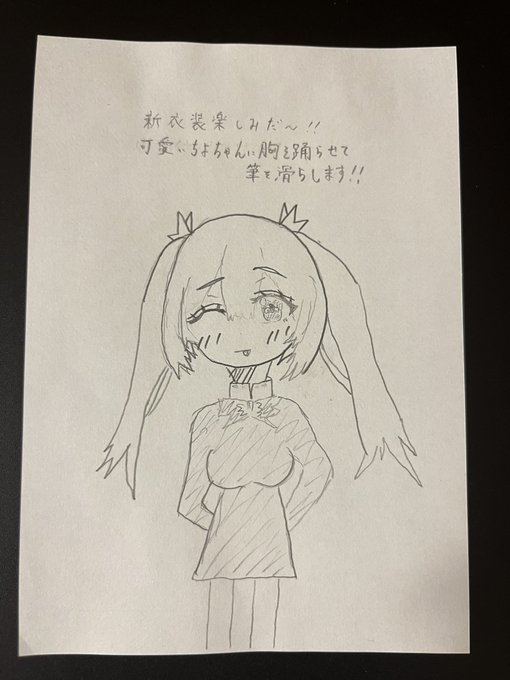 新衣装楽しみだ〜!!
可愛いちよちゃんに胸を踊らせて
筆を滑らします!!